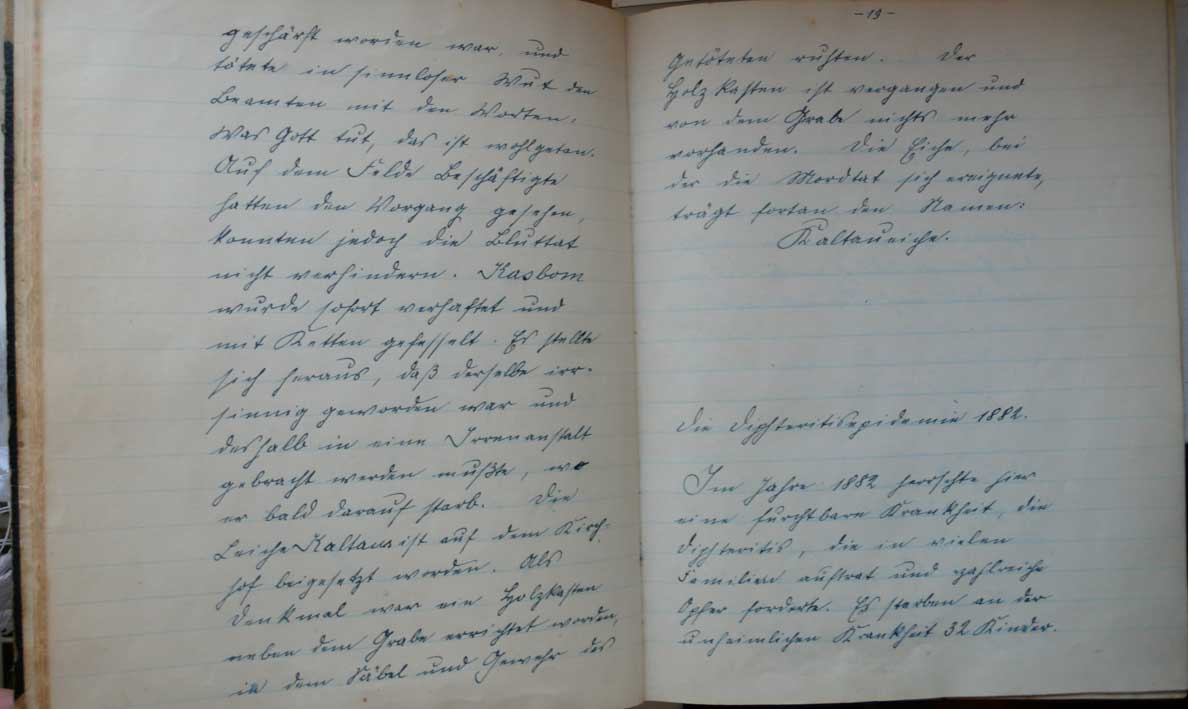 geschärft worden war, und
tötete in sinnloser Wut den
Beamten mit den Worten:
Was Gott tut, das ist wohlgetan.
Auf dem Felde Beschäftigte
hatten den Vorgang gesehen,
konnten jedoch die Bluttat
nicht verhindern. Kasbom
wurde sofort verhaftet und
mit Ketten gefesselt. Es stellte
sich heraus, daß derselbe irr-
sinnig geworden war und
deshalb in eine Irrenanstalt
gebracht werden mußte, wo
er bald darauf starb. Die
Leiche Kaltaus ist auf dem Kirch-
hof beigesetzt worden. Als
Denkmal war ein Holzkasten
neben dem Grabe errichtet worden,
in dem Säbel und Gewehr des
-19-
Getöteten ruhten. Der
Holzkasten ist vergangen und
von dem Grabe nichts mehr
vorhanden. Die Eiche, bei
der die Mordtat sich ereignete,
trägt fortan den Namen:
Kaltaueiche.
Die Diphteritisepidemie 1882.
Im Jahre 1882 herrschte hier
eine furchtbare Krankheit, die
Diphteritis, die in vielen
Familien auftrat und zahlreiche
Opfer forderte. Es starben an der
unheimlichen Krankheit 32 Kinder.